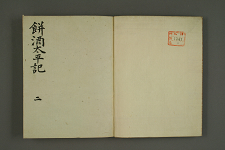 餅酒太平記
二